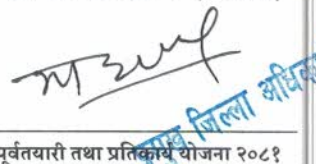 प्रमुख जिल्ला अधिका
पूर्वतयारी तथा प्रतिकार्य योजना २०८१